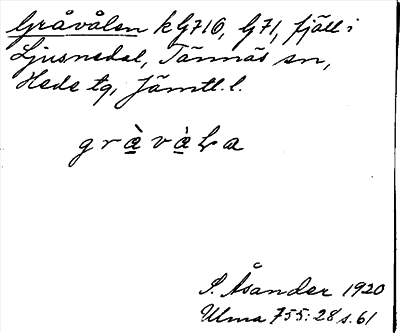 Gråvålen kG710, G71, fjäll i
Ljusnedal, Tännäs sn,
Hede tg, Jämtl. l.
S. Åsander 1920
Ulma 755:28 s. 61